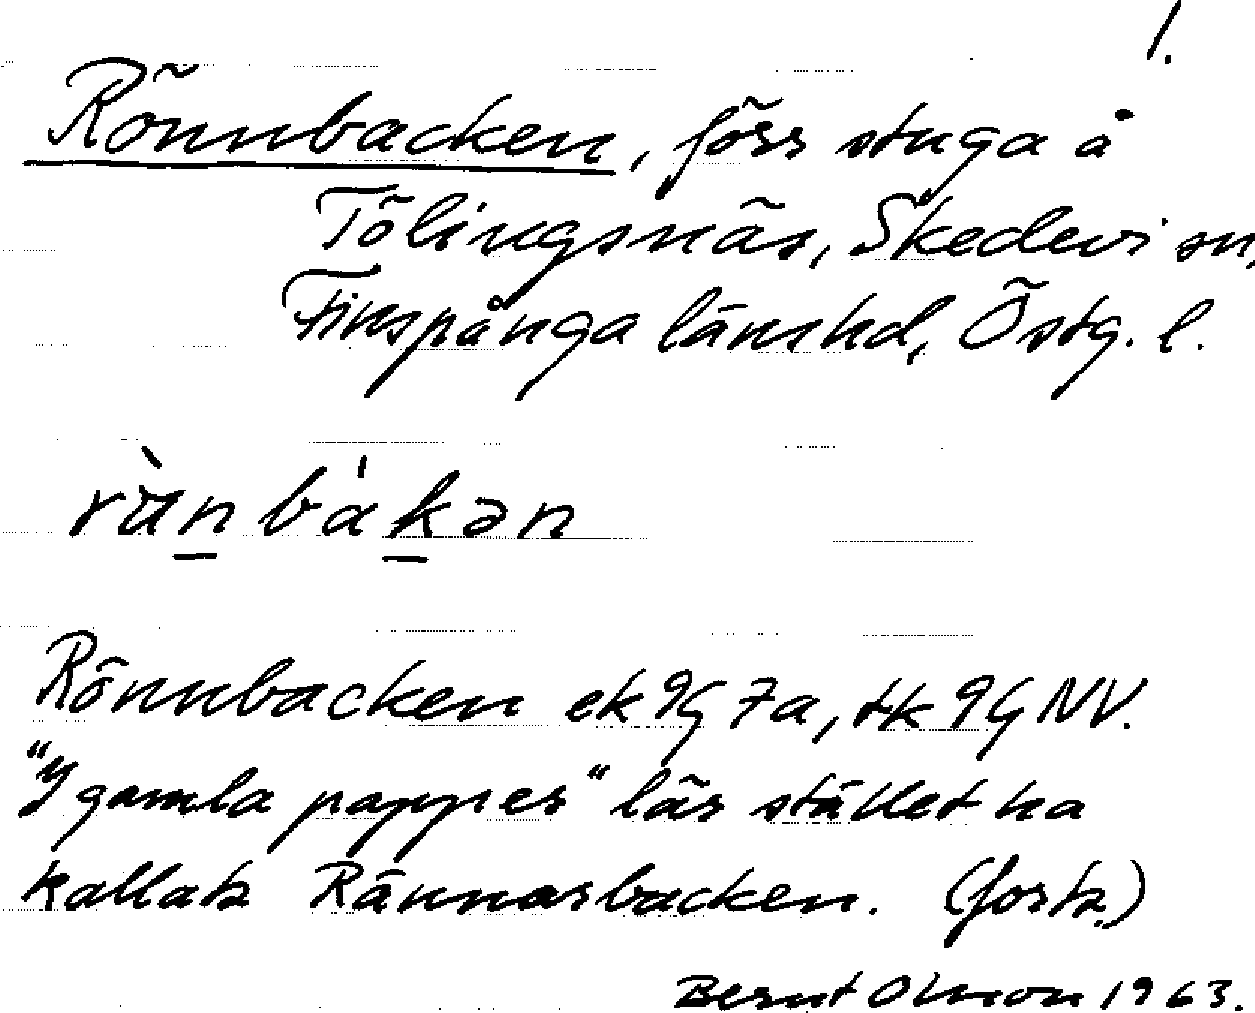 1.
Rönnbacken, förr stuga å
Tölingsnäs, Skedevi sn,
Finspånga länshd, Östg. l.
rùnbákən
Rönnbacken ek 9G 7a, tk 9G NV.
"I gamla papper" lär stället ha
kallats Rännarbacken. (forts.)
Bernt Olsson 1963.